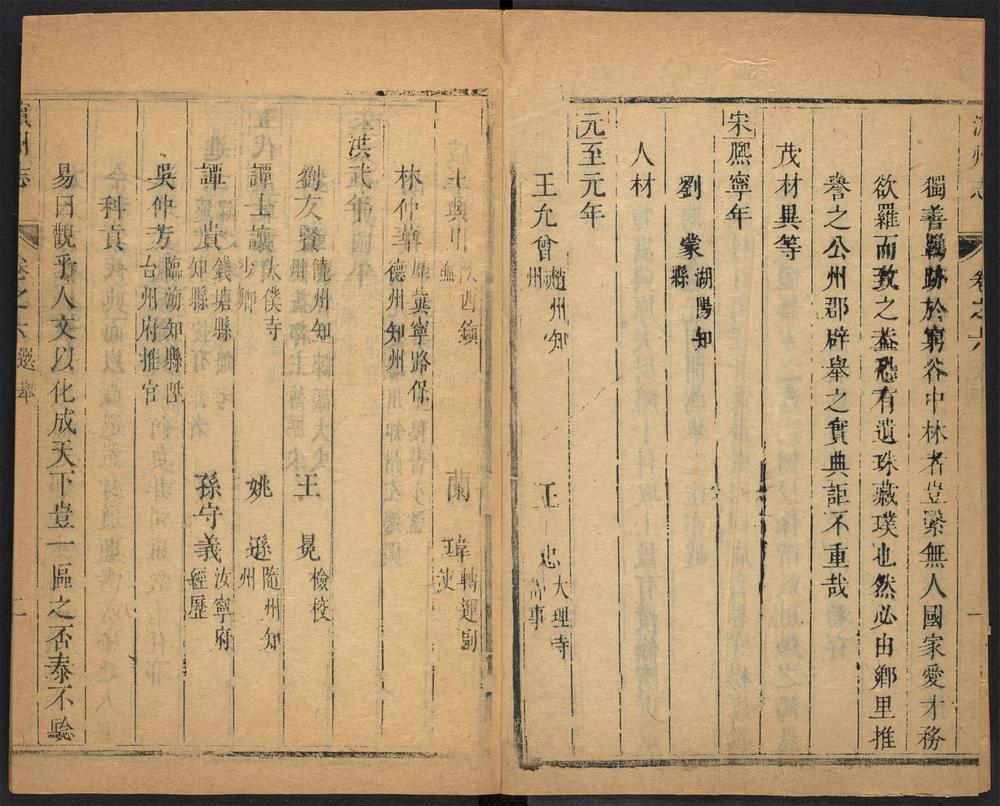 卷之六
一
獨善覊跡於窮谷中林者豈繄無人國家愛才務
欲羅而致之葢恐有遺珠藏璞也然必由鄉里推
譽之公州郡辟舉之實典詎不重哉
茂材異等
宋熈寧年
劉蒙湖陽知縣
人材
元至元年
王允曾趙州知州 王忠大理寺
王興 陜西鎮 蘭瑋轉運副使
林仲華 冀寧路保德州知州
洪武年
劉友賢饒州知州 王冕檢校
譚士讓太僕寺少卿 姚遜隨州知州
譚貴錢塘縣知縣 孫守義汝寧府經歷
吳仲芳臨渝知縣陞台州府推官
科貢
易曰觀乎人文以化成天下豈一區之否泰不驗
州志
卷之六 選舉
二